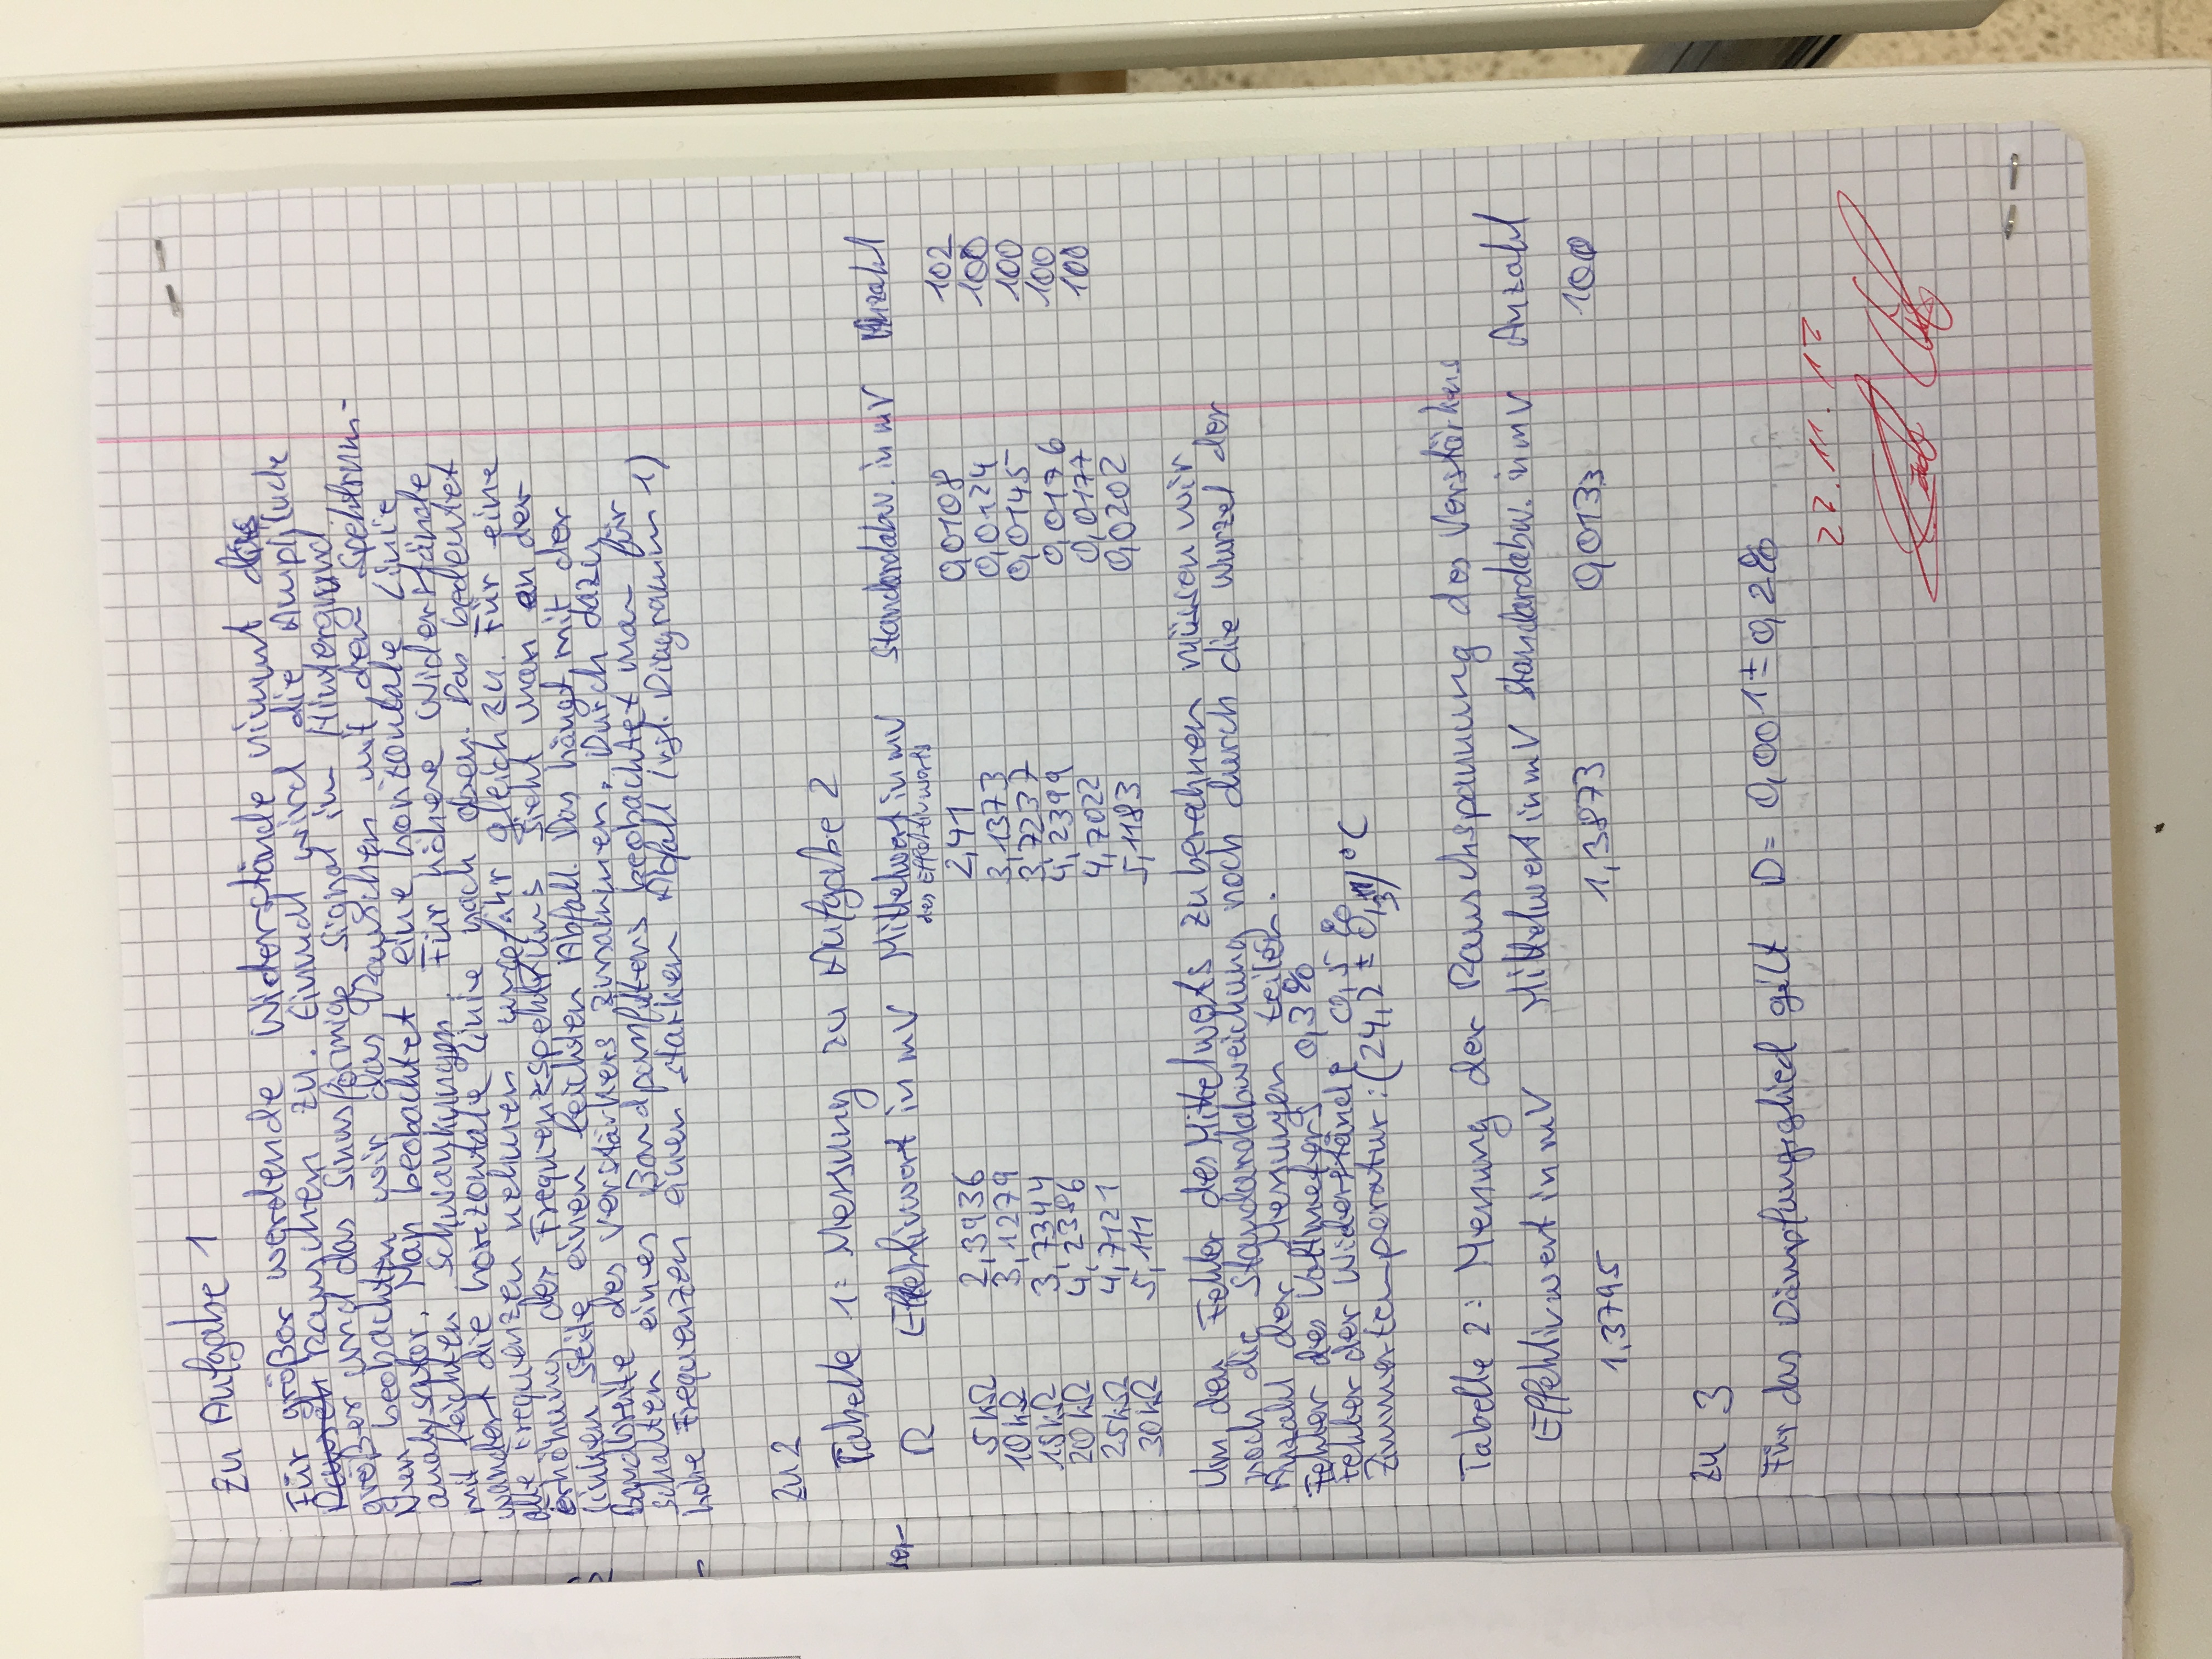 Zu Aufgabe 1
Für größer werdende Widerstände nimmt das
Rauschen zu. Einmal wird die Amplitude
größer und das sinusförmige Signal im Hintergrund.
Nun beobachten wir das Rauschen mit dem Spektrum-
analysator. Man beobachtet eine horizontale Linie
mit leichten Schwankungen. Für höhere Widerstände
wandert die horizontale Linie nach oben. Das bedeutet
alle Frequenzen nehmen ungefähr gleich zu. Für eine
Erhöhung des Frequenzspektrums sieht man an der
linken Seite einen leichten Abfall. Das hängt mit der
Bandbreite des Verstärkers zusammen. Durch dazu
schalten eines Bandpassfilters beobachtet man für
hohe Frequenzen einen starken Abfall (vgl. Diagramm 1)
zu 2
Tabelle 1: Messung zu Aufgabe 2
R Effektivwert in mV Mittelwert in mV Standardabw. in mV Anzahl
des Effektivwerts
5 kΩ 2,3936 2,41 0,0108 102
10 kΩ 3,1279 3,1373 0,0124 100
15 kΩ 3,7344 3,7237 0,0145 100
20 kΩ 4,2386 4,2399 0,0176 100
25 kΩ 4,7121 4,7022 0,0177 100
30 kΩ 5,111 5,1183 0,0202
Um den Fehler des Mittelwerts zu berechnen müssen wir
noch die Standardabweichung noch durch die Wurzel der
Anzahl der Messungen teilen.
Fehler des Voltmeters 0,3%
Fehler der Widerstände 0,5%
Zimmertemperatur: (24,2 ± 0,3) °C
Tabelle 2: Messung der Rauschspannung des Verstärkers
Effektivwert in mV Mittelwert in mV Standardabw. in mV Anzahl
1,3795 1,3873 0,0133 100
zu 3
Für das Dämpfungsglied gilt D = 0,001 ± 0,2%
22.11.17